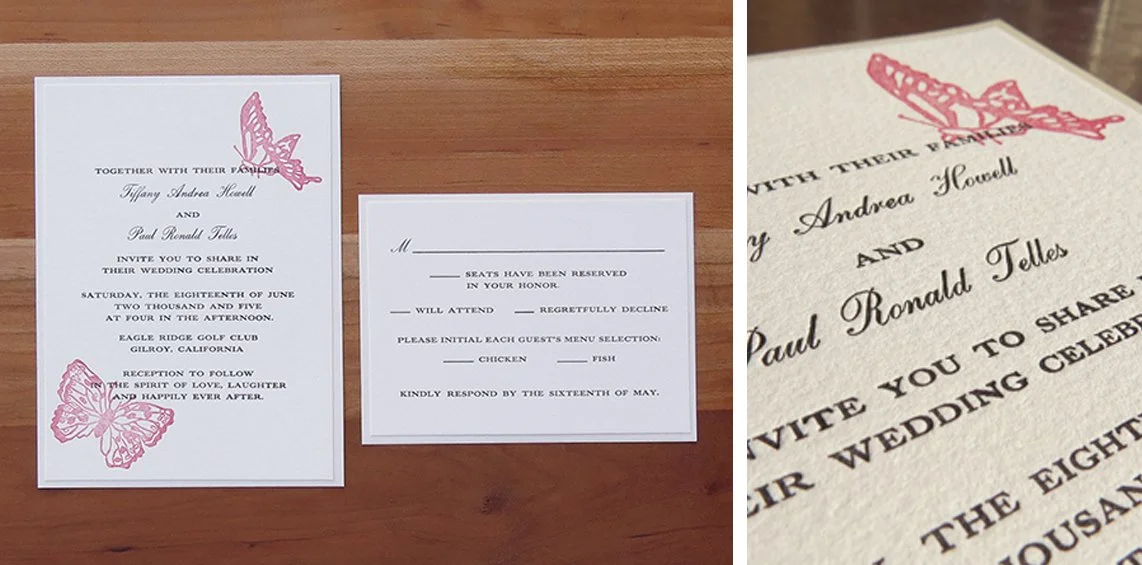 TOGETHER WITH THEIR FAMILIES
Tiffany Andrea Howell
AND
Paul Ronald Telles
INVITE YOU TO SHARE IN
THEIR WEDDING CELEBRATION
SATURDAY, THE EIGHTEENTH OF JUNE
TWO THOUSAND AND FIVE
AT FOUR IN THE AFTERNOON.
EAGLE RIDGE GOLF CLUB
GILROY, CALIFORNIA
RECEPTION TO FOLLOW
IN THE SPIRIT OF LOVE, LAUGHTER
AND HAPPILY EVER AFTER.
M
SEATS HAVE BEEN RESERVED
IN YOUR HONOR.
WILL ATTEND REGRETFULLY DECLINE
PLEASE INITIAL EACH GUEST'S MENU SELECTION:
CHICKEN FISH
KINDLY RESPOND BY THE SIXTEENTH OF MAY.
WITH THEIR FAMILIES
y Andrea Howell
AND
Paul Ronald Telles
NVITE YOU TO SHARE
EIR WEDDING CELEB
THE EIGHT
HOUSAN